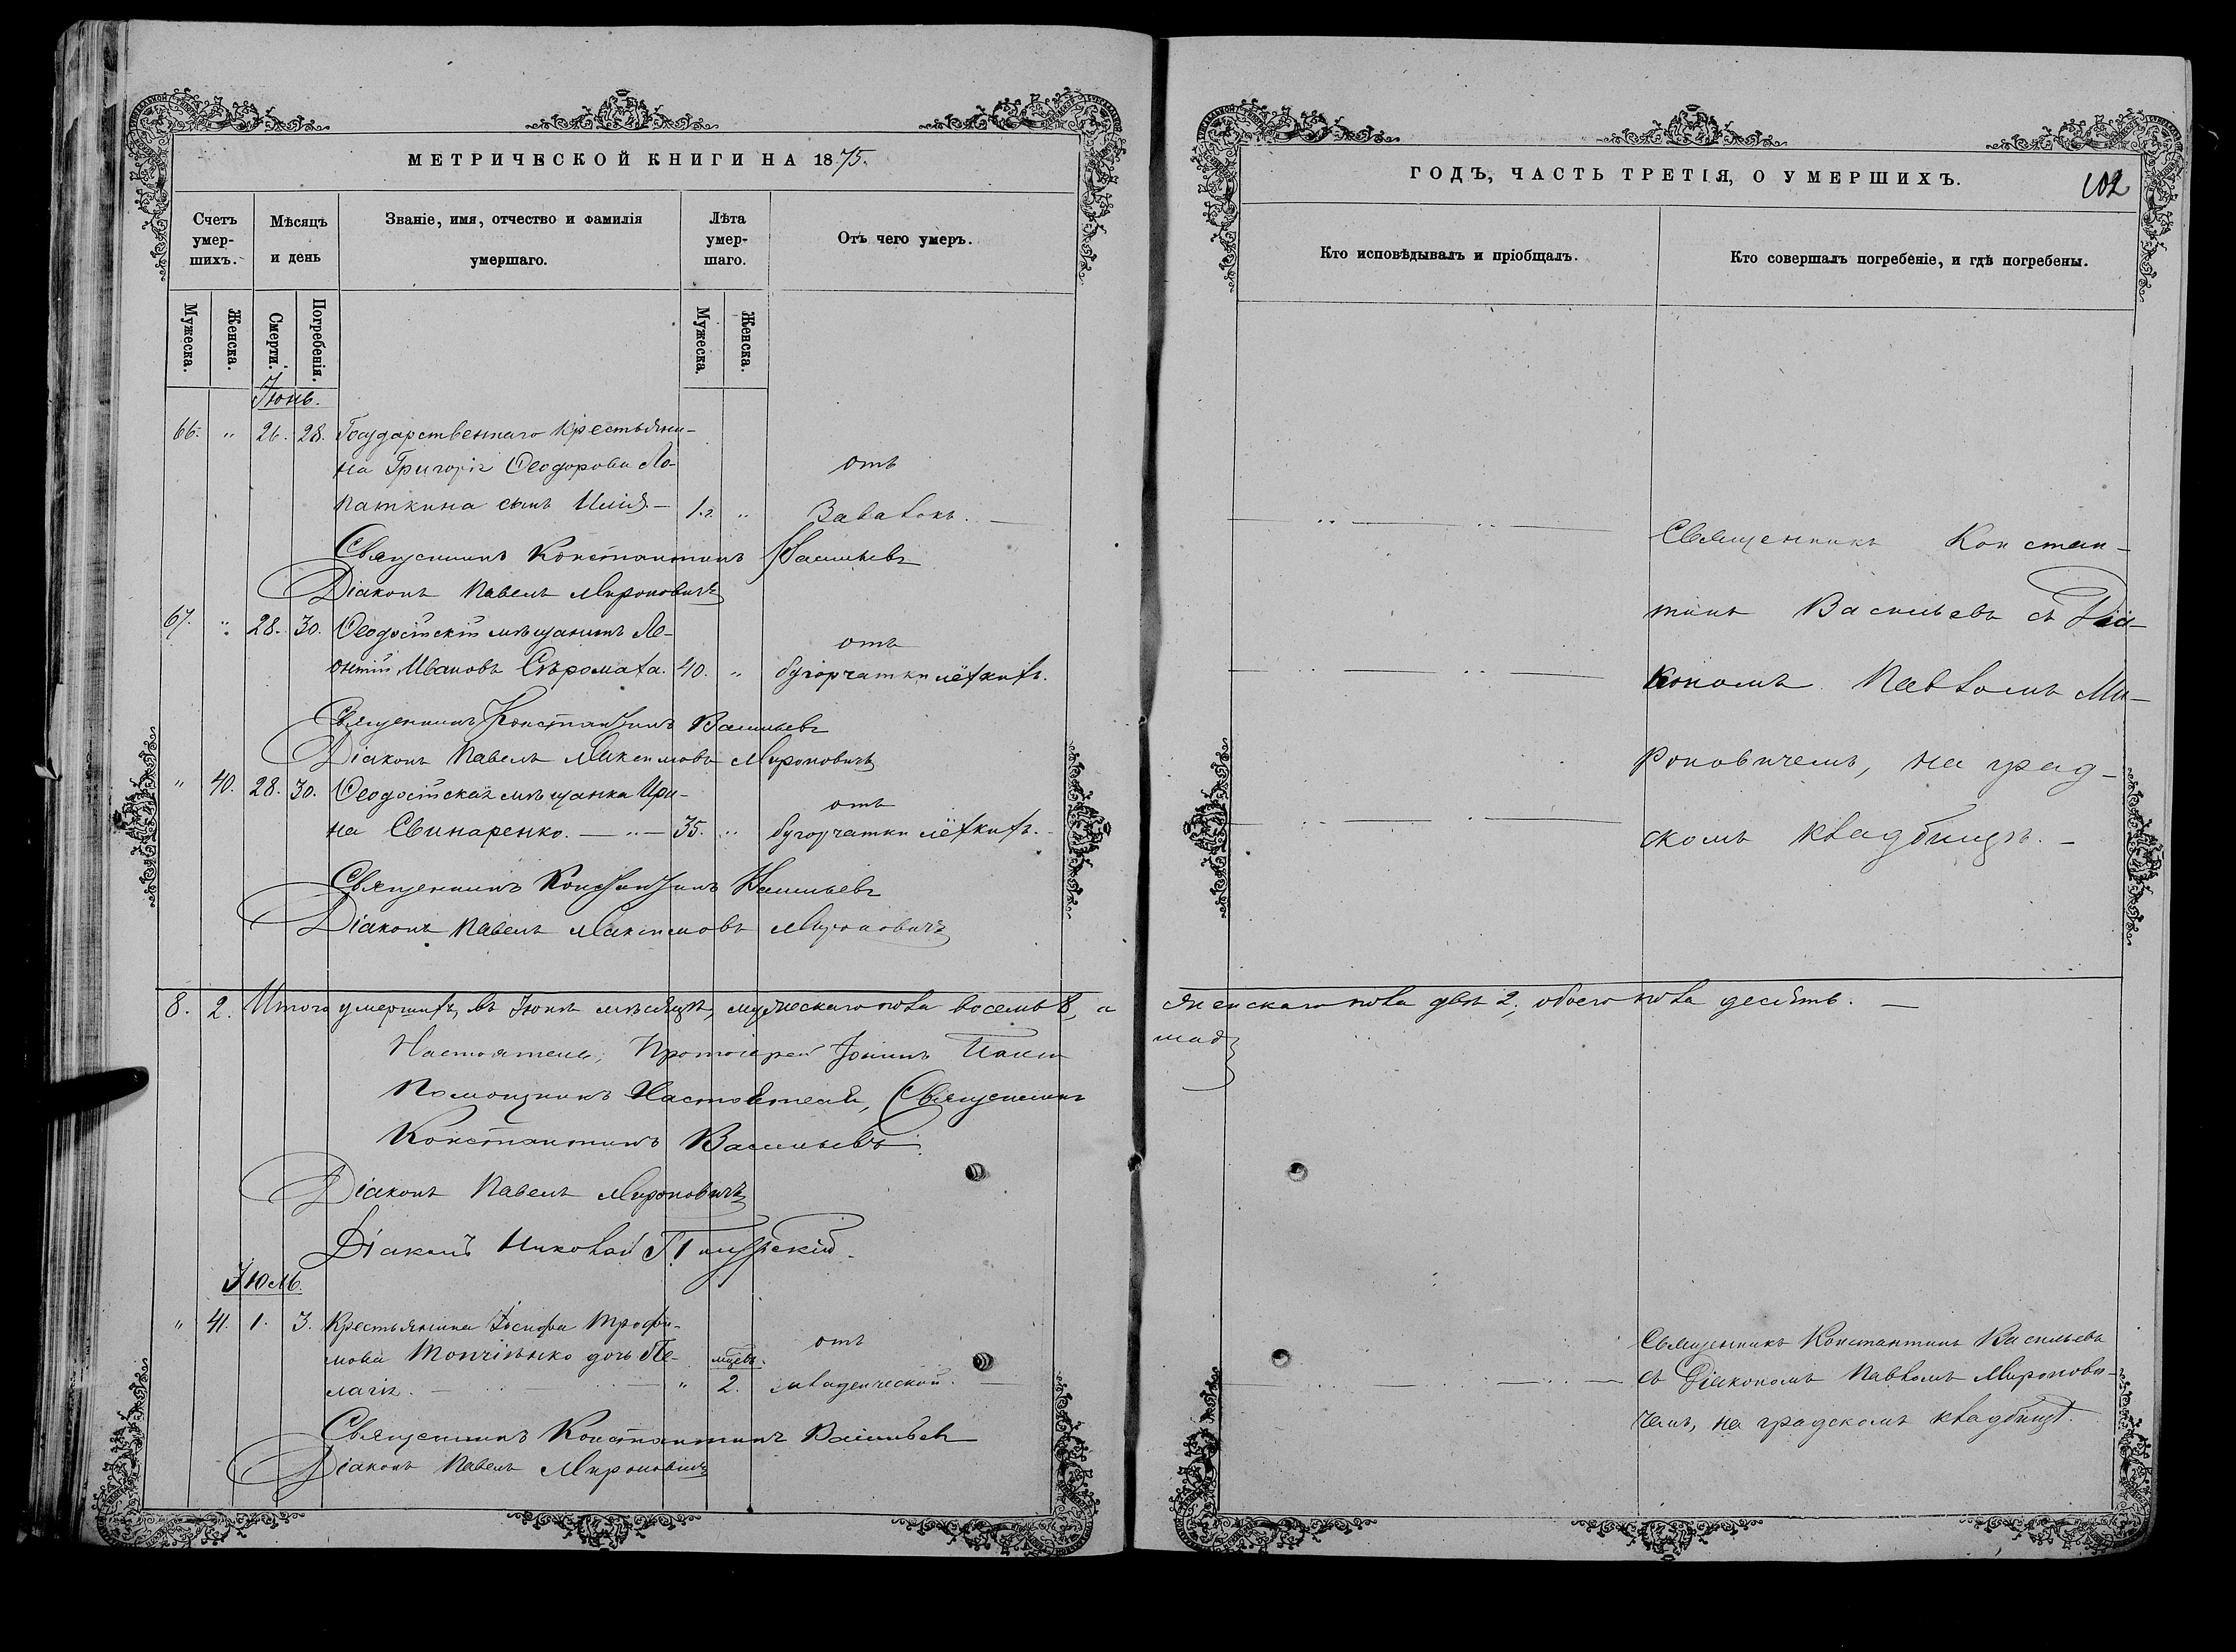 МЕТРИЧЕСКОЙ КНИГИ НА 1875.
Счетъ умер-шихъ.
Мѣсяцъ и день
Званіе, имя, отчество и фамилія умершаго.
Лѣта умер-шаго.
Отъ чего умеръ.
Мужеска.
Женска.
Смерти.
Погребенія.
Мужеска.
Женска.
Іюнь.
66. „ 26. 28. Государственнаго крестьяни-
на Григорія Ѳеодорова Ло-
паткина сынъ Илія. — 1.г. „
отъ
Священникъ Константинъ Васильевъ
Діаконъ Павелъ Мироновичъ
67. „ 28. 30. Ѳеодосійскій мѣщанинъ Ле-
онтій Ивановъ Сѣромаха. 40. „
отъ
бугорчатки лёхкихъ.
Священникъ Константинъ Васильевъ
Діаконъ Павелъ Максимовъ Мироновичъ
„ 40. 28. 30. Ѳеодосійская мѣщанка Ири-
на Свинаренко. — „ — 35. „
отъ
бугорчатки лёхкихъ.
Священникъ Константинъ Васильевъ
Діаконъ Павелъ Максимовъ Мироновичъ
8. 2. Итого умершихъ, въ Іюнѣ мѣсяцѣ, мужескаго пола восемь 8, а
Настоятель, Протоіерей Іоаннъ
Помощникъ Настоятеля, Священникъ
Константинъ Васильевъ.
Діаконъ Павелъ Мироновичъ
Діаконъ Николай
Іюль.
„ 41. 1. 3. Крестьянина Іосифа Трофи-
мова Топчіенко дочь Пе-
лагія. — „ 2.
отъ
младенческой. —
Священникъ Константинъ Васильевъ
Діаконъ Павелъ Мироновичъ
ГОДЪ, ЧАСТЬ ТРЕТІЯ, О УМЕРШИХЪ.
102
Кто исповѣдывалъ и пріобщалъ.
Кто совершалъ погребеніе, и гдѣ погребены.
Священникъ Констан-
тинъ Васильевъ съ Діа-
кономъ Павломъ Ми-
роновичемъ, на град-
скомъ кладбищѣ. —
женскаго пола двѣ 2, обоего пола десять. —
Священникъ Константинъ Васильевъ
съ Діакономъ Павломъ Миронови-
чемъ, на градскомъ кладбищѣ.